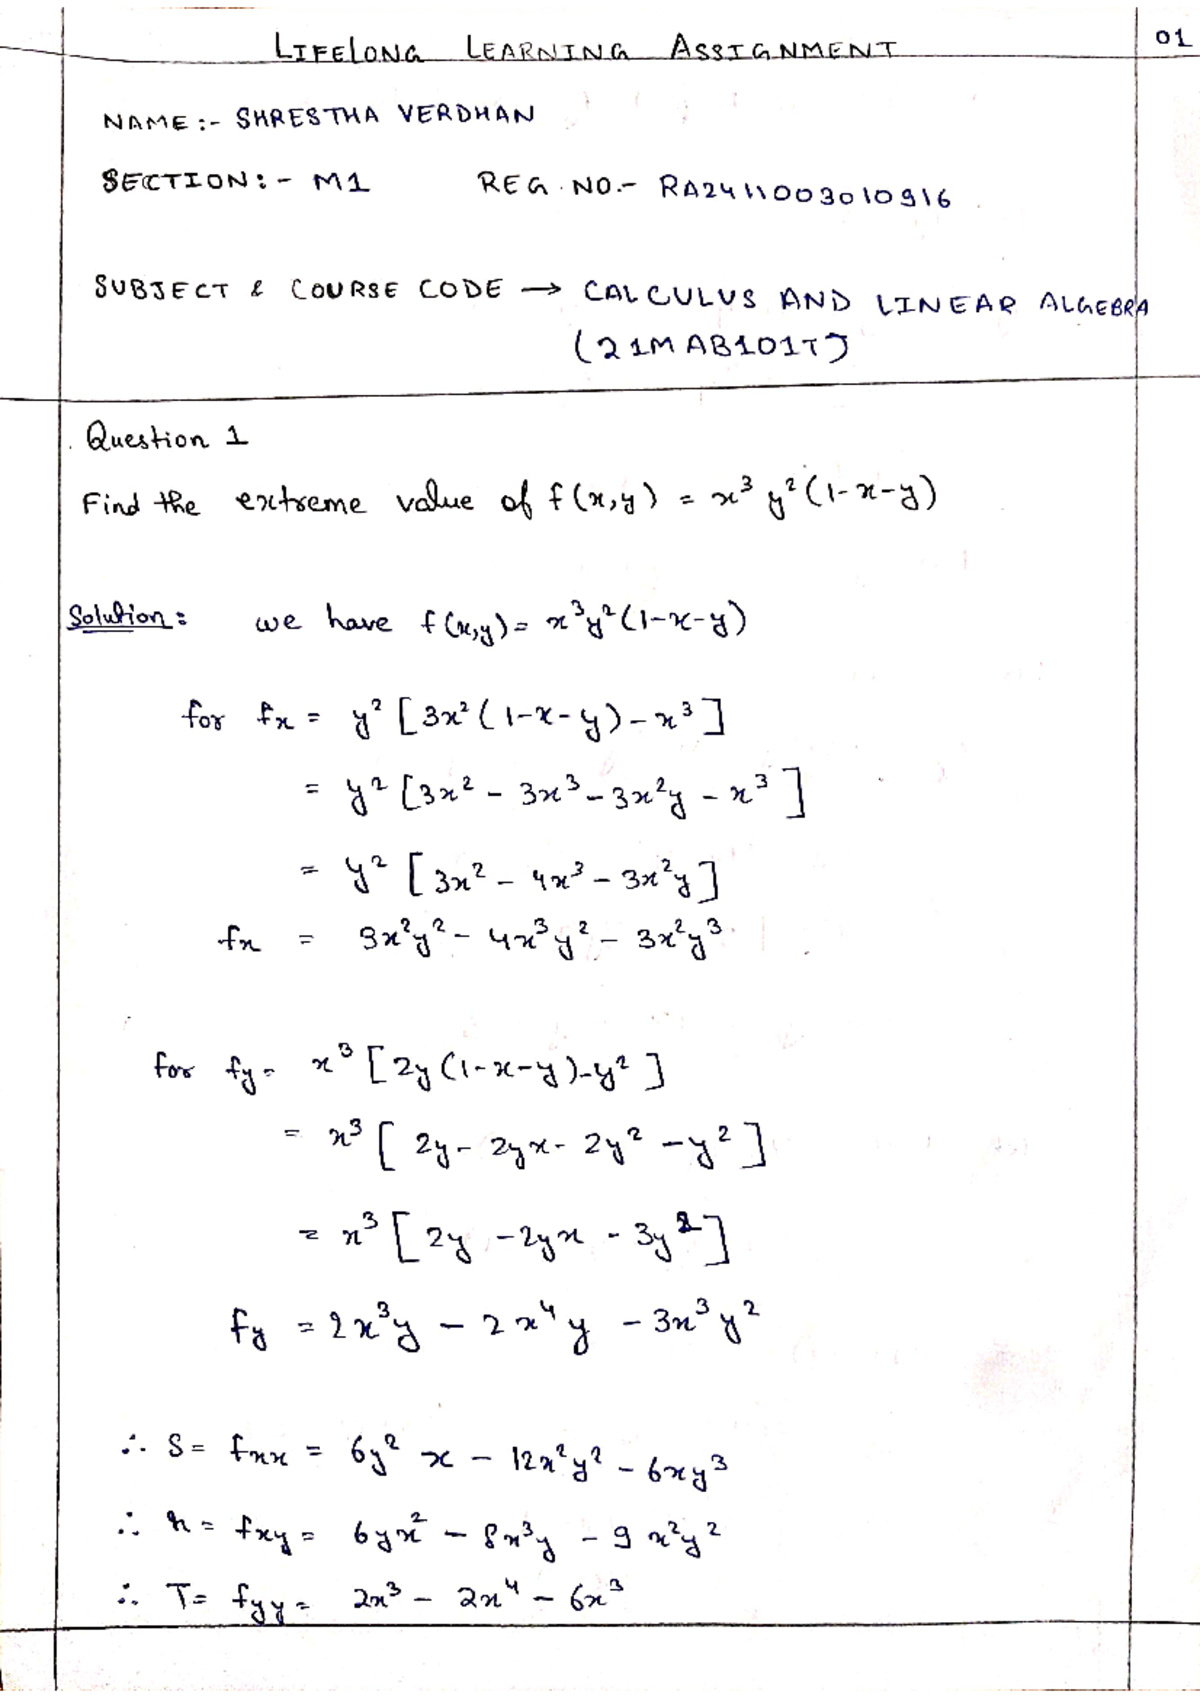 LIFELONG LEARNING ASSIGNMENT 01
NAME :- SHRESTHA VERDHAN
SECTION :- M1 REG. NO.- RA2411003010916
SUBJECT & COURSE CODE → CALCULUS AND LINEAR ALGEBRA
(21MAB101T)
Question 1
Find the extreme value of f(x,y) = x³y²(1-x-y)
Solution: we have f(x,y) = x³y²(1-x-y)
for fx = y² [3x²(1-x-y) - x³]
= y² [3x² - 3x³ - 3x²y - x³]
= y² [3x² - 4x³ - 3x²y]
fx = 3x²y² - 4x³y² - 3x²y³
for fy = x³ [2y(1-x-y) - y²]
= x³ [2y - 2yx - 2y² - y²]
= x³ [2y - 2yx - 3y²]
fy = 2x³y - 2x⁴y - 3x³y²
∴ S = fxx = 6y²x - 12x²y² - 6xy³
∴ r = fxy = 6yx² - 8x³y - 9x²y²
∴ T = fyy = 2x³ - 2x⁴ - 6x³